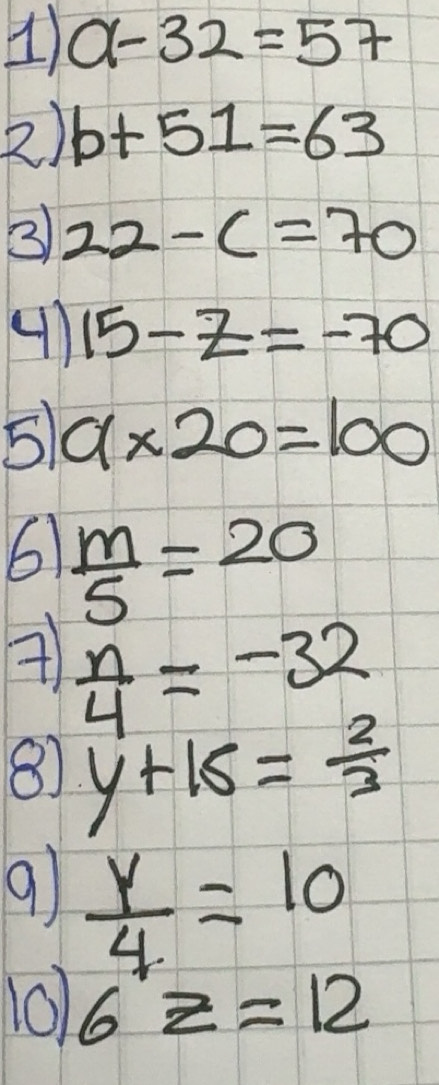 1) a-32=57
2) b+51=63
3) 22-c=70
4) 15-z=-70
5) a×20=100
6) m/5=20
7) n/4=-32
8) y+15=2/3
9) y/4=10
10) 6 z=12